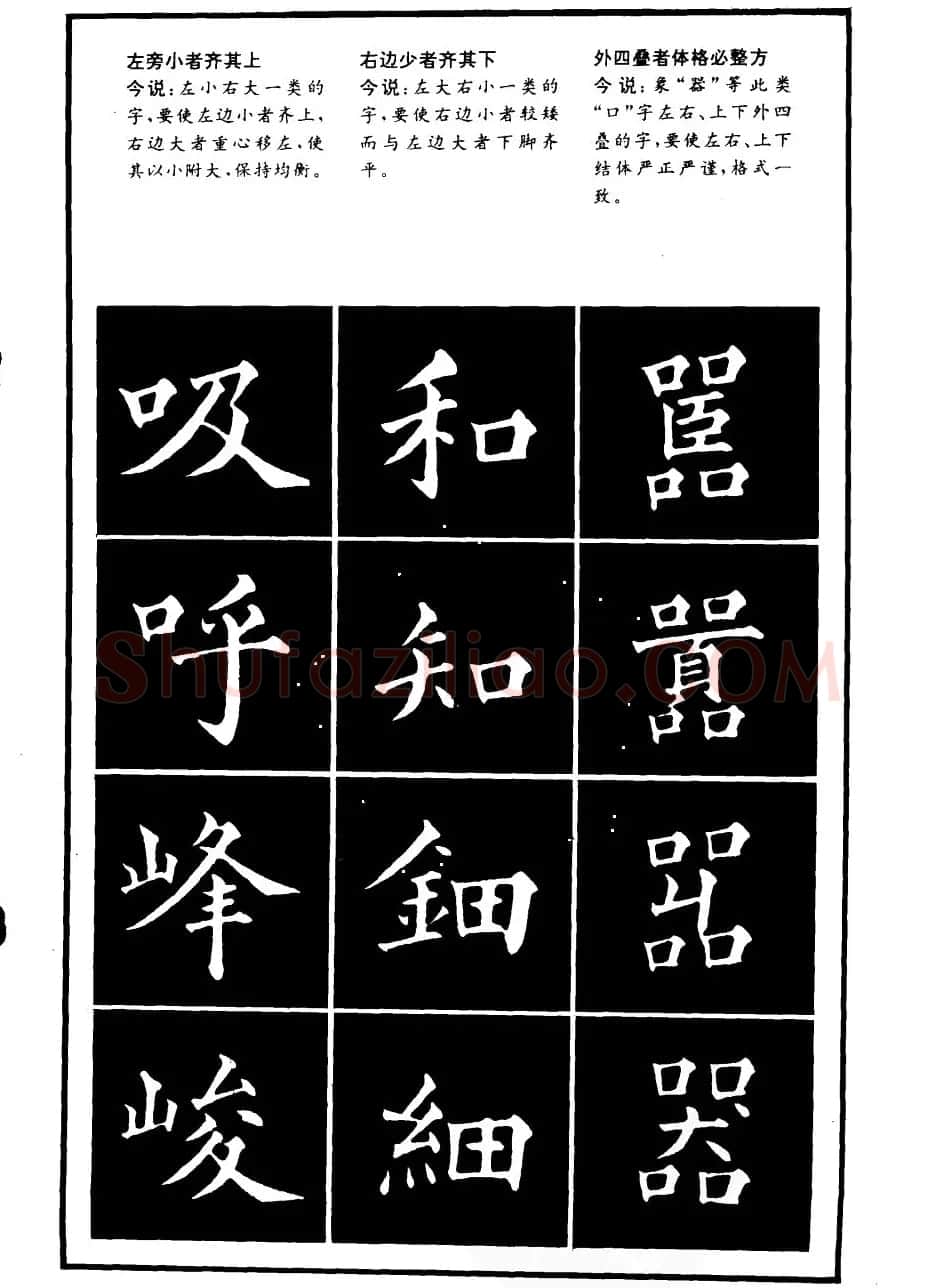 左旁小者齐其上
今说:左小右大一类的
字,要使左边小者齐上,
右边大者重心移左,使
其以小附大,保持均衡。
右边少者齐其下
今说:左大右小一类的
字,要使右边小者较矮
而与左边大者下脚齐
平。
外四叠者体格必整方
今说:象“器”等此类
“口”字左右、上下外四
叠的字,要使左右、上下
结体严正严谨,格式一
致。
吸
呼
峰
峻
和
知
鈿
細
嚚
囂
㗊
器
Shufaziliao.COM